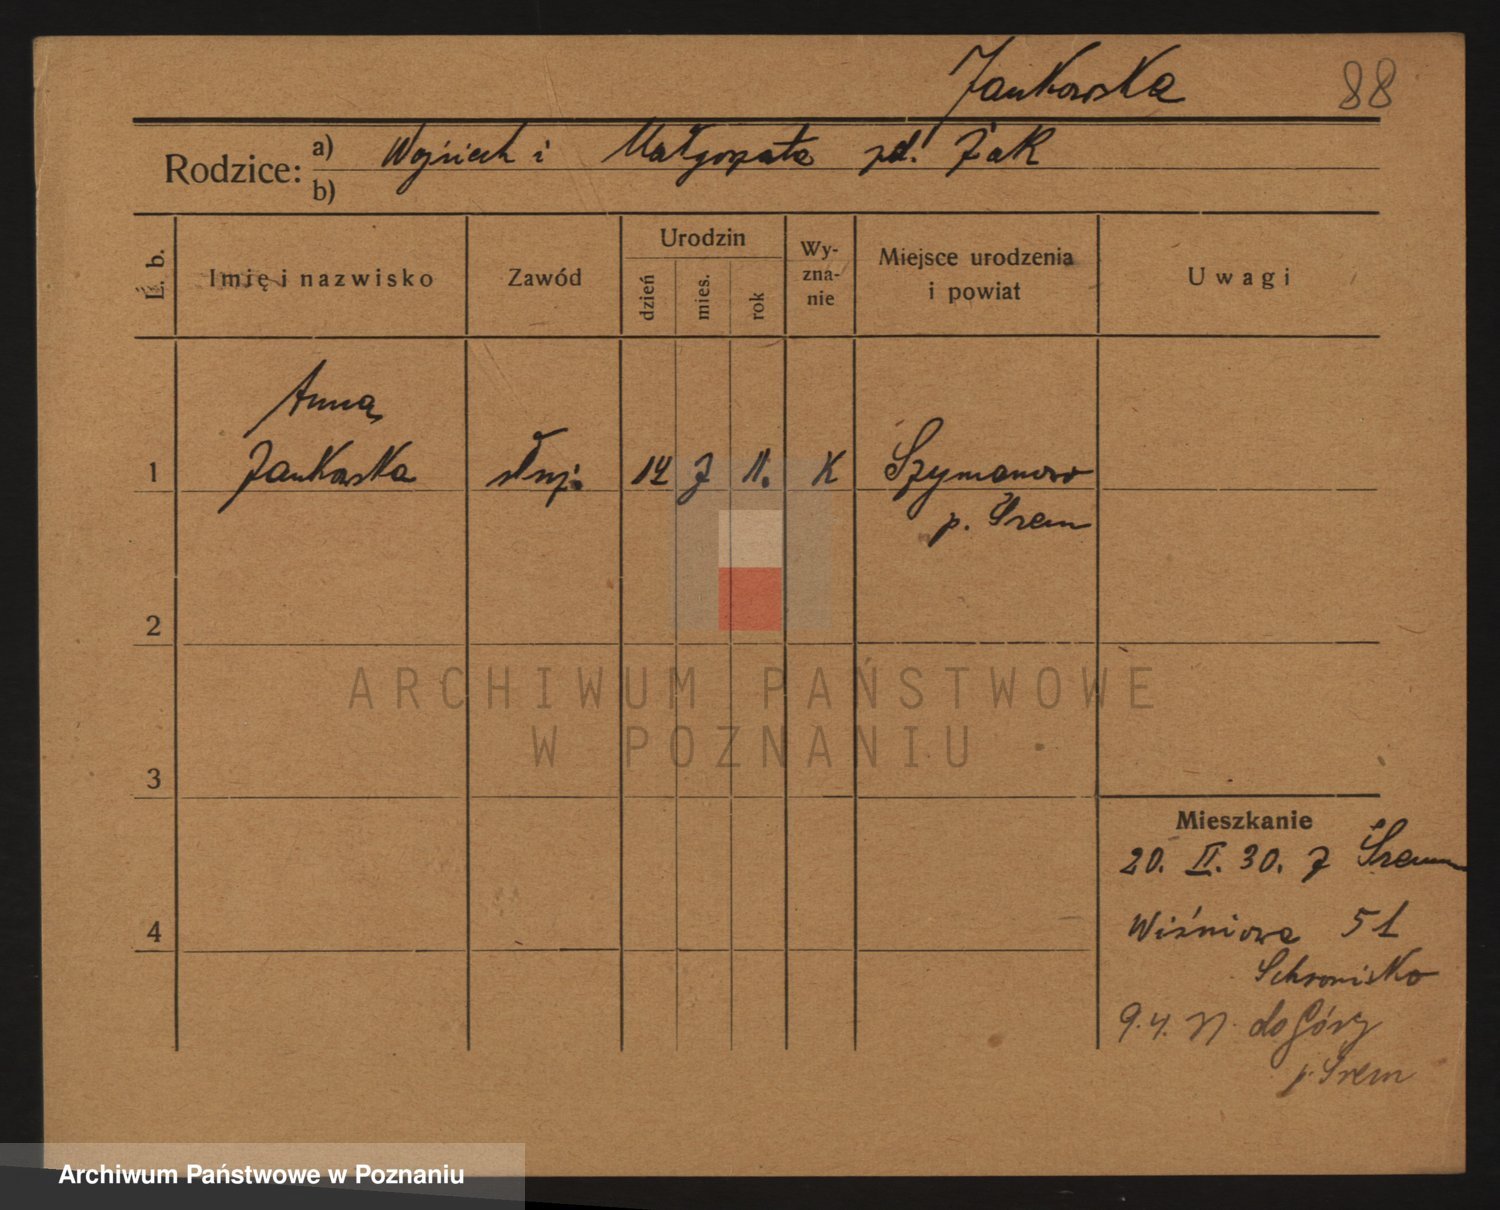 Jankowska 88
Rodzice: a) Wojciech i Małgorzata zd. Żak
b)
L. b. Imię i nazwisko Zawód Urodzin dzień mies. rok Wy-zna-nie Miejsce urodzenia i powiat Uwagi
Anna
1 Jankowska służ. 14 7 11. K Szymanowo
p. Śrem
2
ARCHIWUM PAŃSTWOWE
W POZNANIU
3
Mieszkanie
20. II. 30. z Śrem
4 Wiśniowa 51
Schronisko
9.4. do Góry
p. Śrem
Archiwum Państwowe w Poznaniu